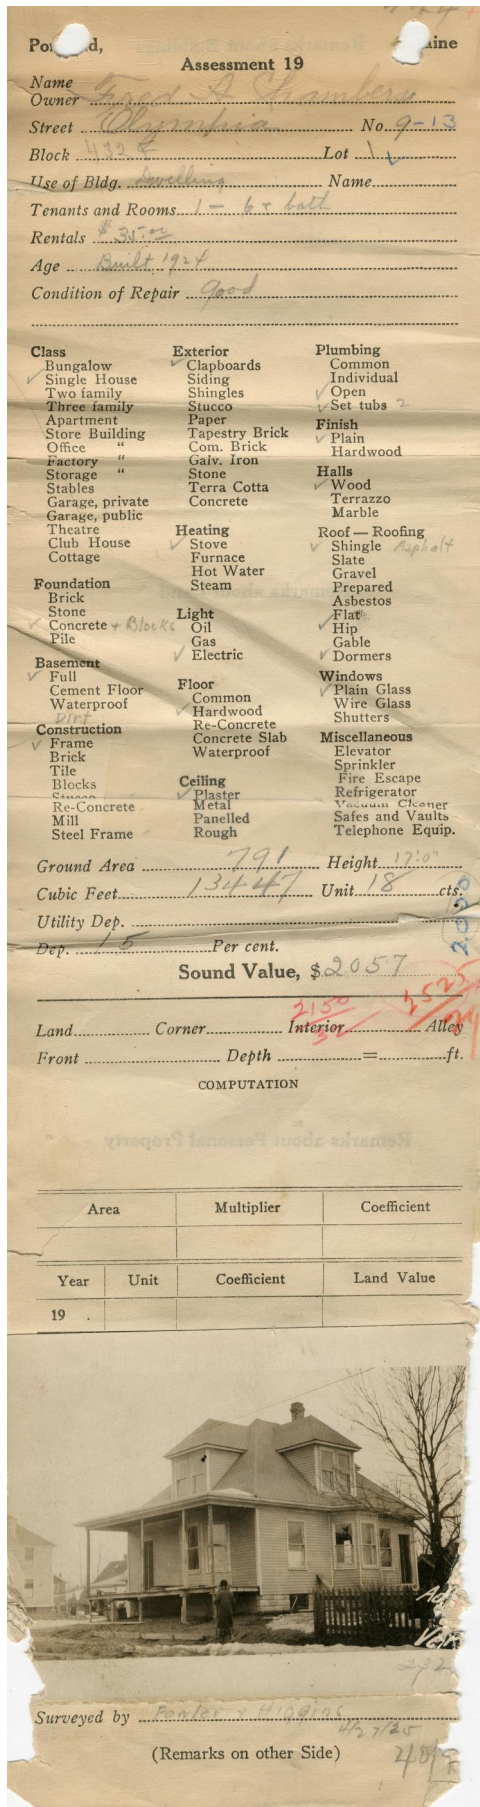 Portland, Maine
Assessment 19
Name
Owner Fred A Chambers
Street Olympia No. 9-13
Block 432 Lot 1
Use of Bldg. Dwelling Name
Tenants and Rooms 1 - 6 + bath
Rentals $35.00
Age Built 1924
Condition of Repair good
Class
Bungalow
✓ Single House
Two family
Three family
Apartment
Store Building
Office "
Factory "
Storage "
Stables
Garage, private
Garage, public
Theatre
Club House
Cottage
Foundation
Brick
Stone
✓ Concrete + Blocks
Pile
Basement
✓ Full
Cement Floor
Waterproof
Dirt
Construction
✓ Frame
Brick
Tile
Blocks
Stucco
Re-Concrete
Mill
Steel Frame
Exterior
✓ Clapboards
Siding
Shingles
Stucco
Paper
Tapestry Brick
Com. Brick
Galv. Iron
Stone
Terra Cotta
Concrete
Heating
✓ Stove
Furnace
Hot Water
Steam
Light
Oil
Gas
✓ Electric
Floor
Common
✓ Hardwood
Re-Concrete
Concrete Slab
Waterproof
Ceiling
✓ Plaster
Metal
Panelled
Rough
Plumbing
Common
Individual
✓ Open
✓ Set tubs 2
Finish
✓ Plain
Hardwood
Halls
✓ Wood
Terrazzo
Marble
Roof — Roofing
✓ Shingle Asphalt
Slate
Gravel
Prepared
Asbestos
Flat
✓ Hip
Gable
✓ Dormers
Windows
✓ Plain Glass
Wire Glass
Shutters
Miscellaneous
Elevator
Sprinkler
Fire Escape
Refrigerator
Vacuum Cleaner
Safes and Vaults
Telephone Equip.
Ground Area 791 Height 17'0"
Cubic Feet 13447 Unit 18 cts.
Utility Dep.
Dep. 15 Per cent.
Sound Value, $2057
2150
Land Corner Interior Alley
Front Depth = ft.
COMPUTATION
Area Multiplier Coefficient
Year Unit Coefficient Land Value
19
Surveyed by Fowler + Higgins
4/27/25
(Remarks on other Side)